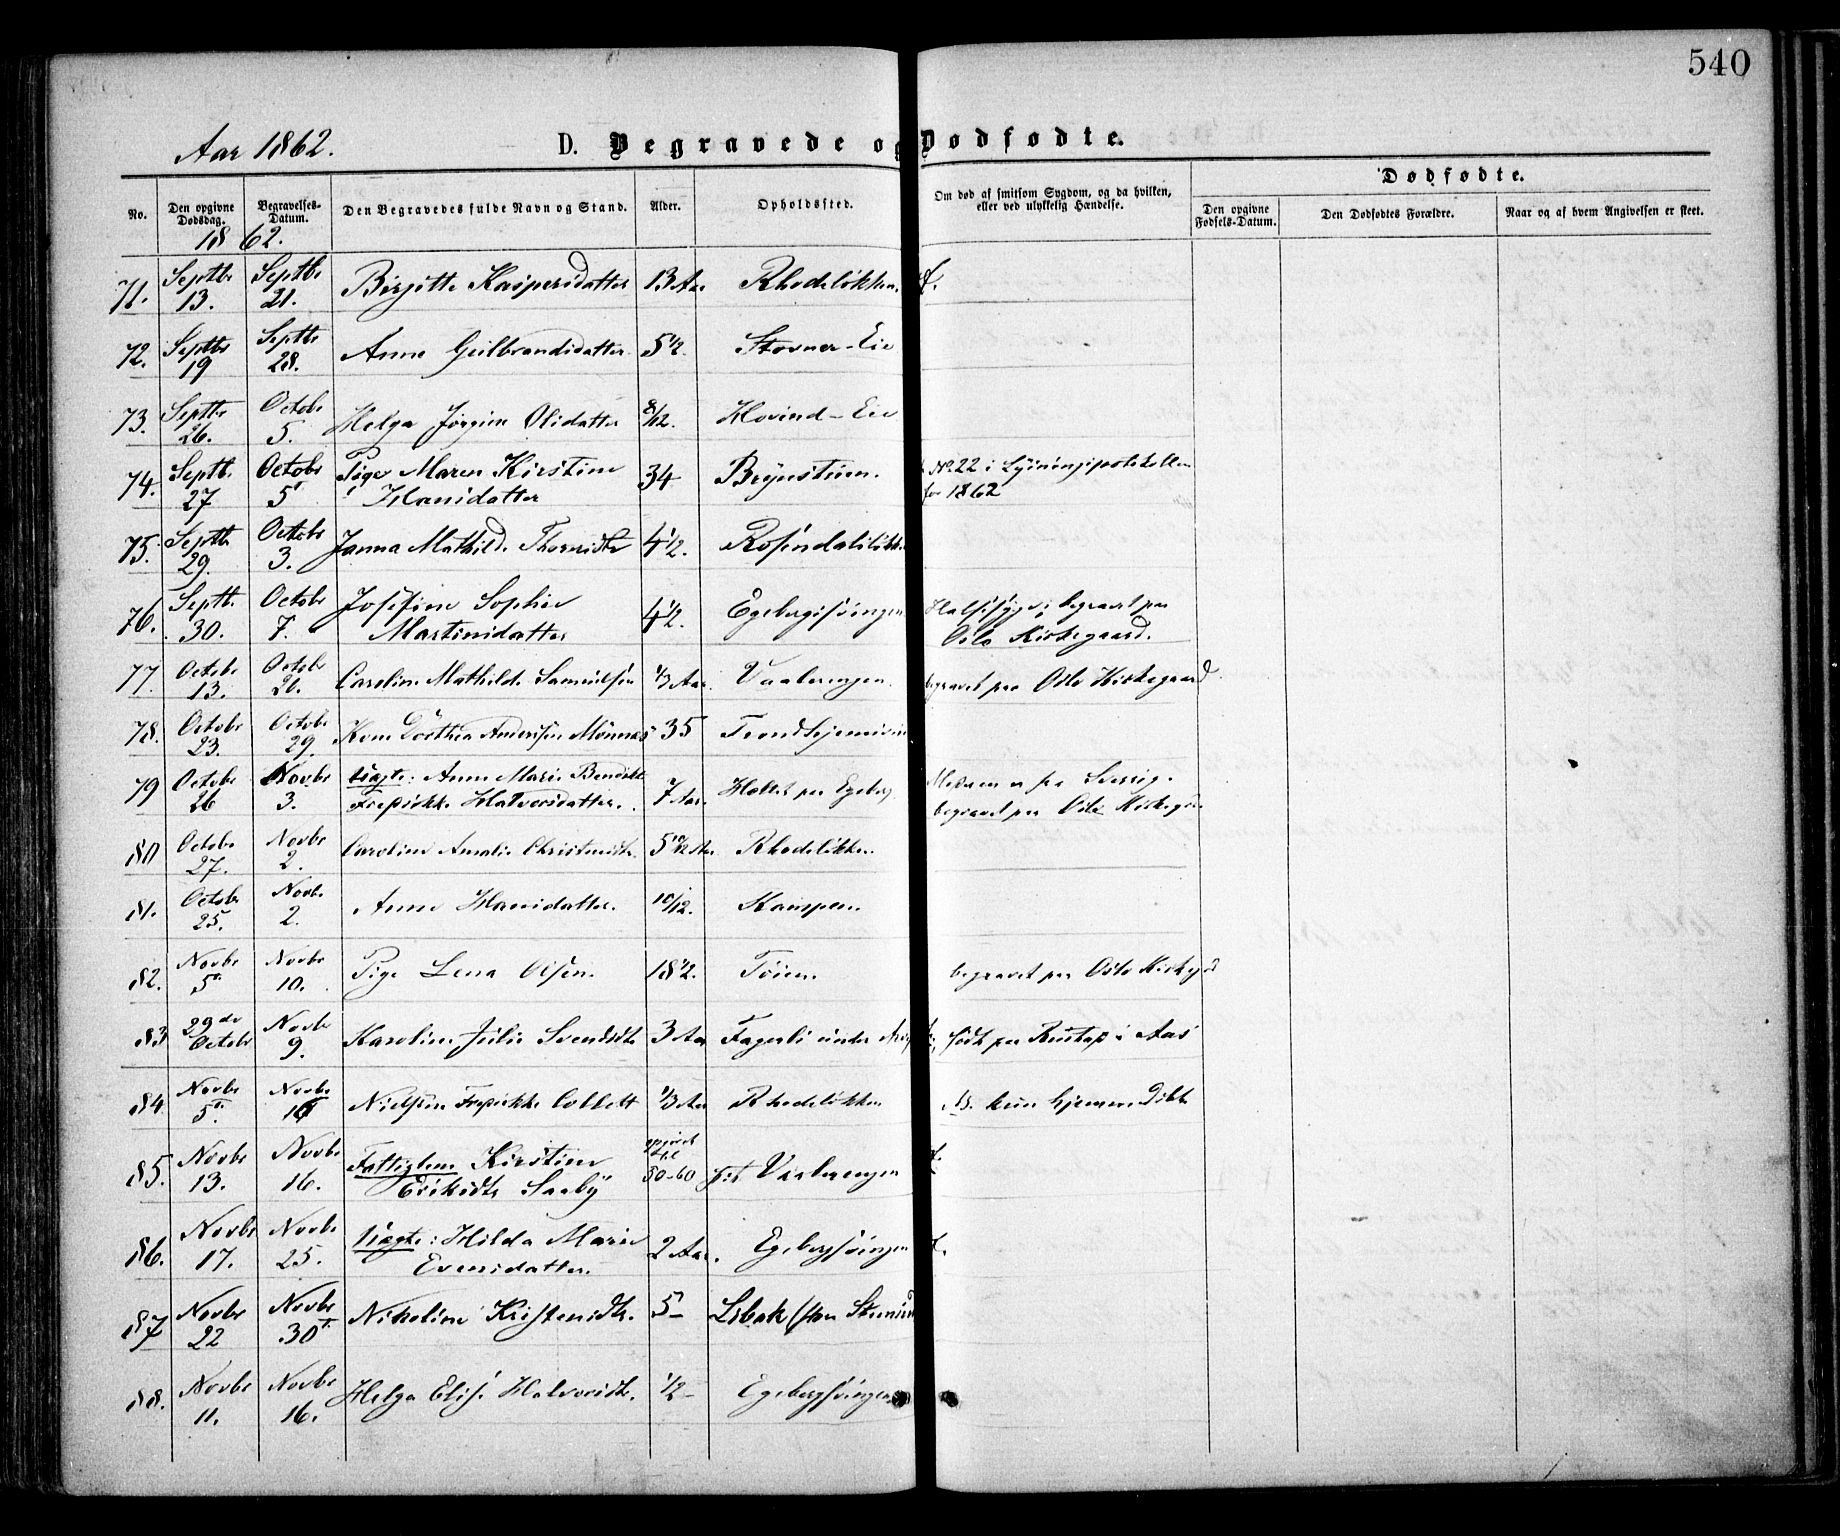 540
Aar 1862.
D. Begravede og Dødfødte.
No.
Den opgivne Dødsdag.
Begravelses-Datum.
Den Begravedes fulde Navn og Stand.
Alder.
Opholdssted.
Om død af smitsom Sygdom, og da hvilken, eller ved ulykkelig Hændelse.
Dødfødte.
Den opgivne Fødsels-Datum.
Den Dødfødtes Forældre.
Naar og af hvem Angivelsen er skeet.
1862.
71. Septbr 13. Septbr 21. Birgitte Kaspersdatter 13 Aar Rhodeløkken
72. Septbr 19 Septbr 28. Anne Gulbrandsdatter 5 1/2. Stovner-Eie
73. Septbr 26. Octobr 5. Helga Jørgine Olsdatter 8/12. Hovind-Eie
74. Septbr. 27 Octobr 5 Pige Maren Kirstine Hansdatter 34 Brynstuen. No 22 i Lysningsprotokollen for 1862
75. Septbr. 29. Octobr 3. Janna Mathilde 4 1/2. Rosendalsløkk
76. Septbr. 30. Octobr 7. Josefine Sophie Martinsdatter 4 1/2. Egebergssvingen Halssyge; begravet paa Oslo Kirkegaard.
77. Octobr 13. Octobr Caroline Mathilde Samuelsen 1/3 Aar. Vaalerengen. begravet paa Oslo Kirkegaard.
78. Octobr 23. Octobr 29. Kone Dorthea Andersen 35 Trondhjemsvei
79 Octobr 26 Novbr 3. Uægte: Anne Marie Fredrikke Halvorsdatter. 7 Aar. Holtet paa Egeberg Moderen er fra Sverrig. begravet paa Oslo Kirkegd
80 Octobr 27. Novbr 2. Caroline Amalie 5 10/12 Aar Rhodeløkken.
81. Octobr 25. Novbr 2. Anne Hansdatter. 10/12. Kampen.
82. Novbr 5 Novbr 10. Pige Lena Olsen. 18 1/2. Tøien. begravet paa Oslo Kirkegd
83 29de Octobr Novbr 9. Karoline Julie Svendsdt 3 Aar Fagerli under født paa Rustad i Aas
84 Novbr 5. Novbr 16 Nielsine Fredrikke Collett 1/3 Aar Rhodeløkken NB. kun hjemmedøbt
85. Novbr 13. Novbr 16. Fattiglem Kirstine Eriksdtr Saxby opgivet til 50-60 Vaalerengen
86. Novbr 17. Novbr 25. Uægte: Hilda Marie Evensdatter. 2 Aar. Egebergssvingen
87 Novbr 22 Novbr 30 Nikoline Kristensdtr. 5 Lsbak
88. Novbr 11. Novbr 16. Helga Elise Halvorsdtr. 1/2 Egebergssvingen